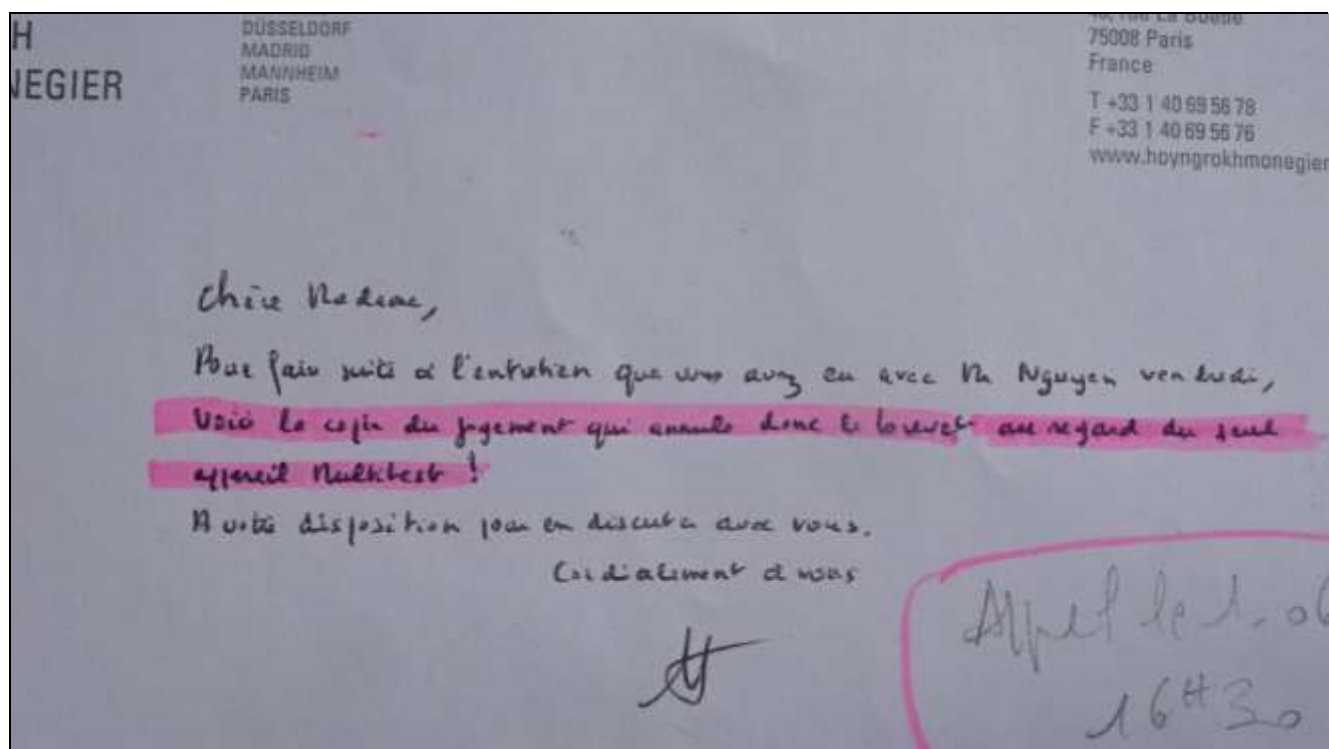 H
NEGIER
DÜSSELDORF
MADRID
MANNHEIM
PARIS
rue La Boétie
75008 Paris
France
T +33 1 40 69 56 78
F +33 1 40 69 56 76
www.hoyngrokhmonegier
Chère Madame,
Pour faire suite à l'entretien que vous avez eu avec Me Nguyen vendredi,
Voici la copie du jugement qui annule donc le brevet au regard du seul
appareil Multitest !
A votre disposition pour en discuter avec vous.
Cordialement à vous
Appel le 1.06
16H30